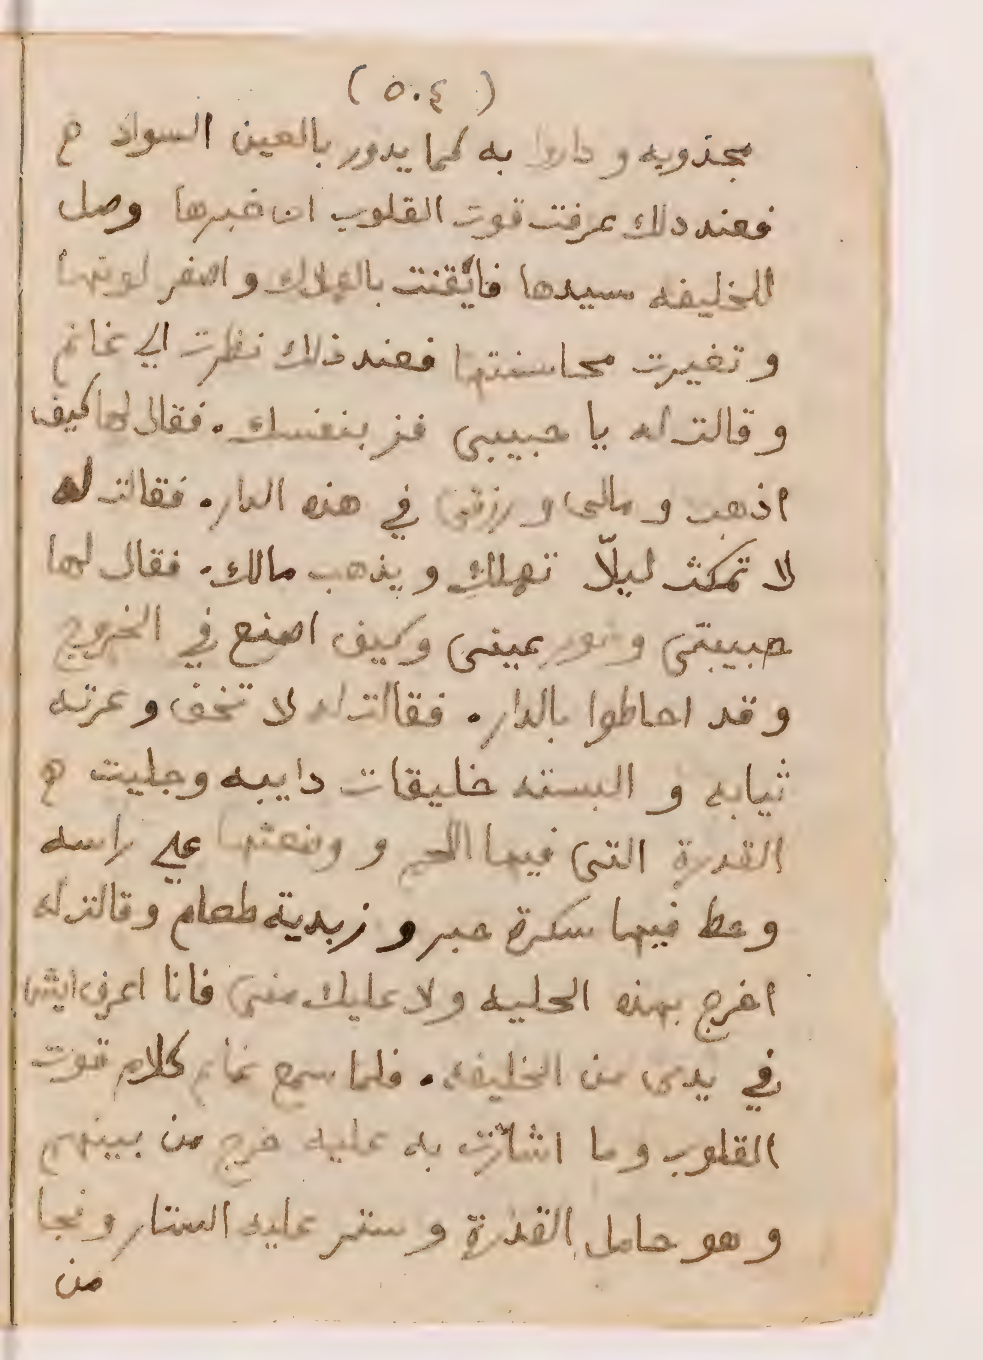 ( ٥٠٤ )
مجذوبه و داروا به كما يدور بالعين السواد ح
فعند ذلك عرفت قوت القلوب ان خبرها وصل
للخليفه سيدها فايقنت بالهلاك و اصفر لونها
و تغيرت محاسنها فعند ذلك نظرت الي غانم
و قالت له يا حبيبى فز بنفسك . فقال لها كيف
اذهب و مالى و رزقى في هذه الدار . فقالت له
لا تمكث ليلّا تهلك و يذهب مالك . فقال لها
حبيبتى و نور عينى وكيف اصنع في الخروج
و قد احاطوا بالدار . فقالت له لا تخف و عرته
ثيابه و البسته خليقات دايبه وجليت ح
القدرة التى فيها اللحم و وضعتها علي راسه
و حط فيها سكرة و زبدية طعام و قالت له
اخرج بهذه الحليه ولا عليك منى فانا اعرف ايش
في يدى من الخليفه . فلما سمع غانم كلام قوت
القلوب وما اشارت به عليه خرج من بينهم
و هو حامل القدرة و ستر عليه الستار و نجا
من